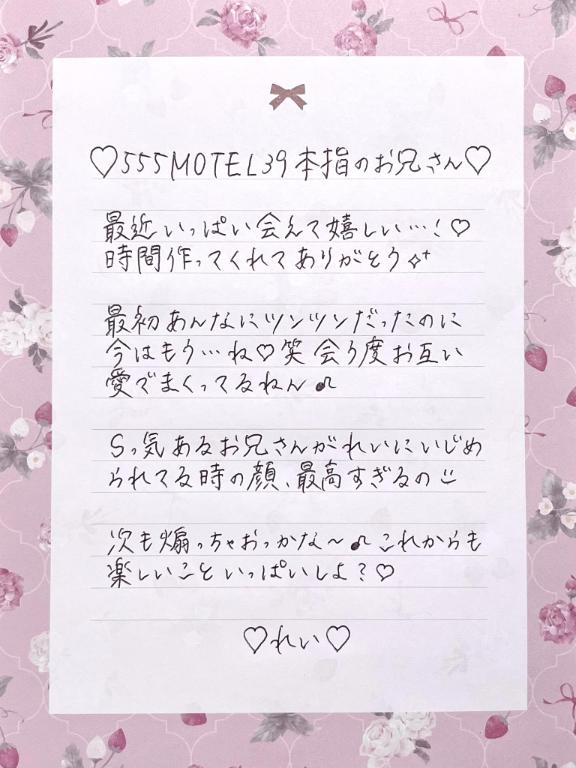 ♡555MOTEL39本指のお兄さん♡
最近いっぱい会えて嬉しい…!♡
時間作ってくれてありがとう✧⁺
最初あんなにツンツンだったのに
今はもう…ね♡笑 会う度お互い
愛でまくってるねん♪
Sっ気あるお兄さんがれいにいじめ
られてる時の顔、最高すぎるの☺
次も煽っちゃおっかな～♪これからも
楽しいこといっぱいしよ?♡
♡れい♡